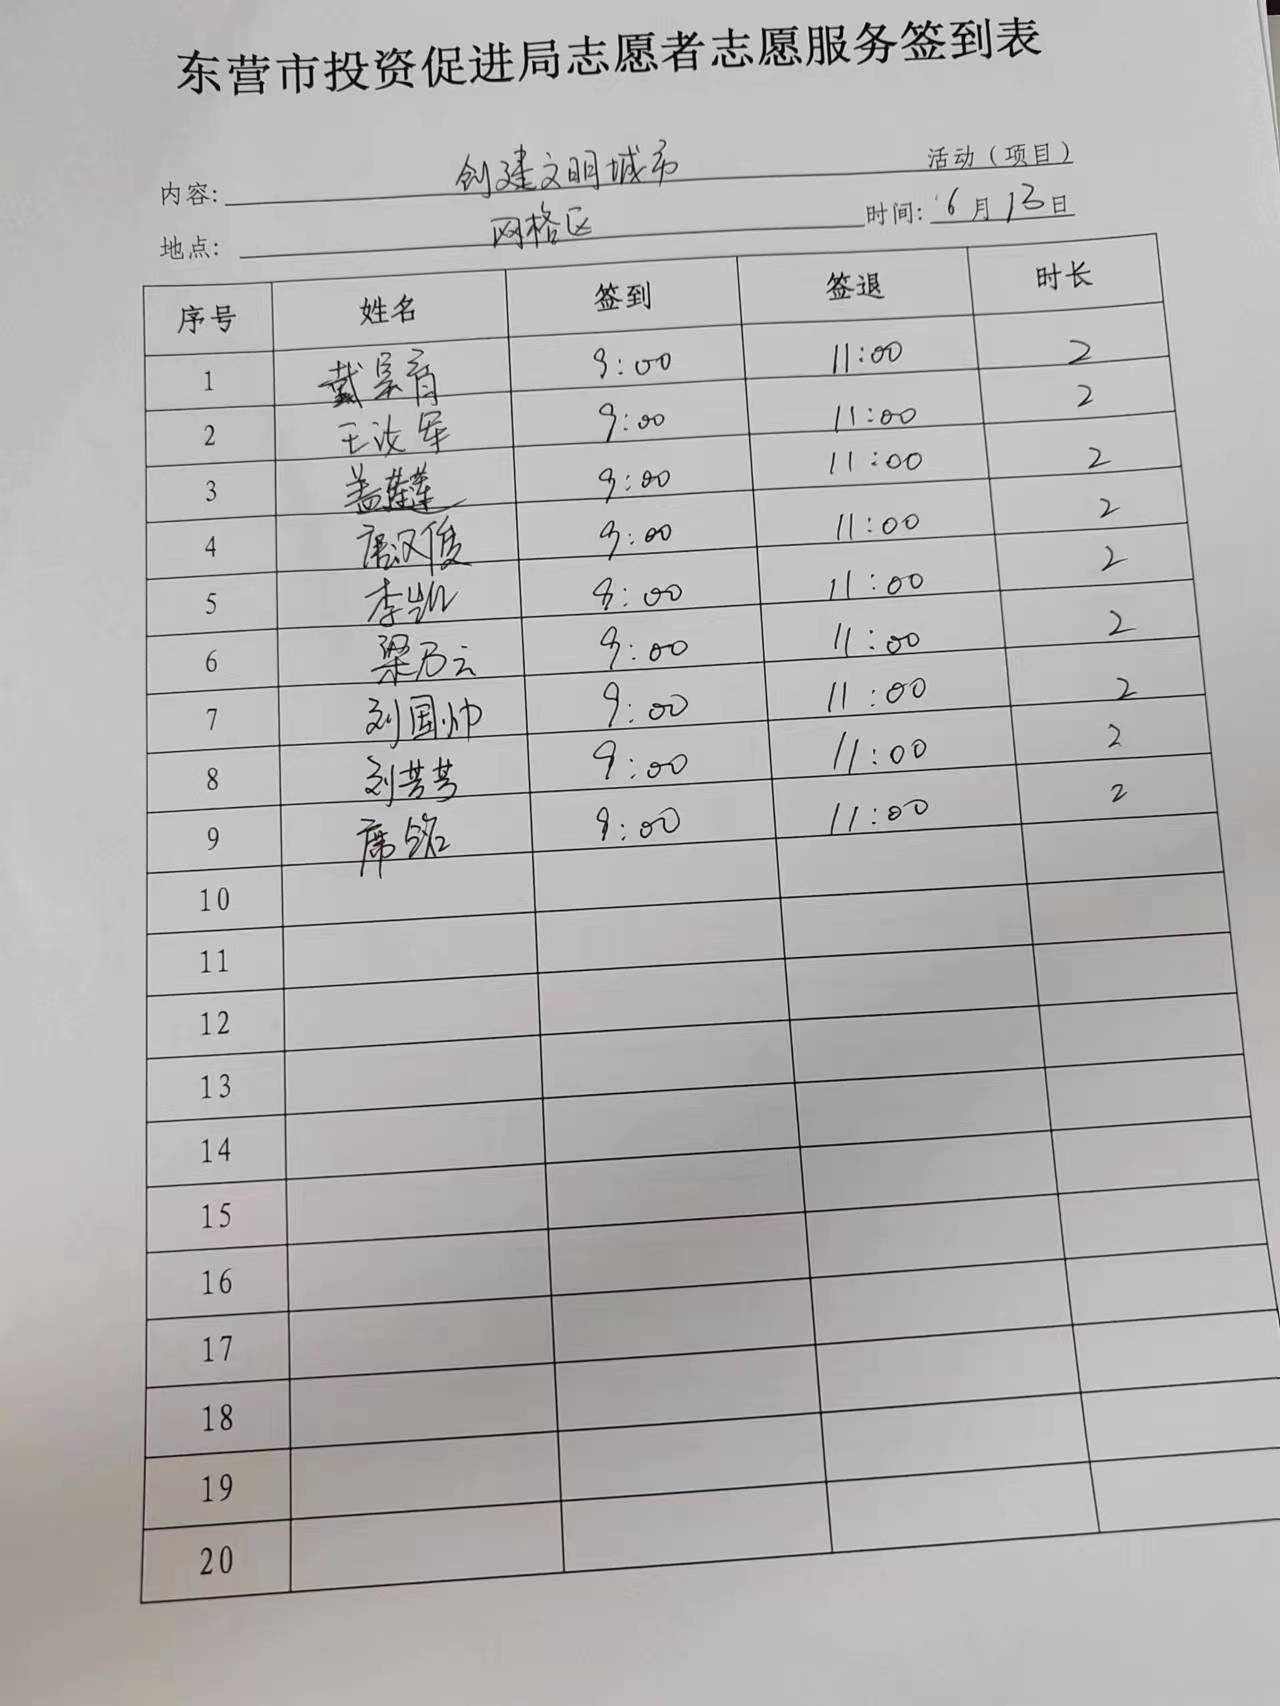 东营市投资促进局志愿者志愿服务签到表
内容: 创建文明城市 活动（项目）
地点: 网格区 时间: 6月13日
序号 姓名 签到 签退 时长
1 戴 9:00 11:00 2
2 王汝军 9:00 11:00 2
3 盖莲莲 9:00 11:00 2
4 唐汉俊 9:00 11:00 2
5 李凯 9:00 11:00 2
6 梁乃云 9:00 11:00 2
7 刘国帅 9:00 11:00 2
8 刘芳芳 9:00 11:00 2
9 席铭 9:00 11:00 2
10
11
12
13
14
15
16
17
18
19
20